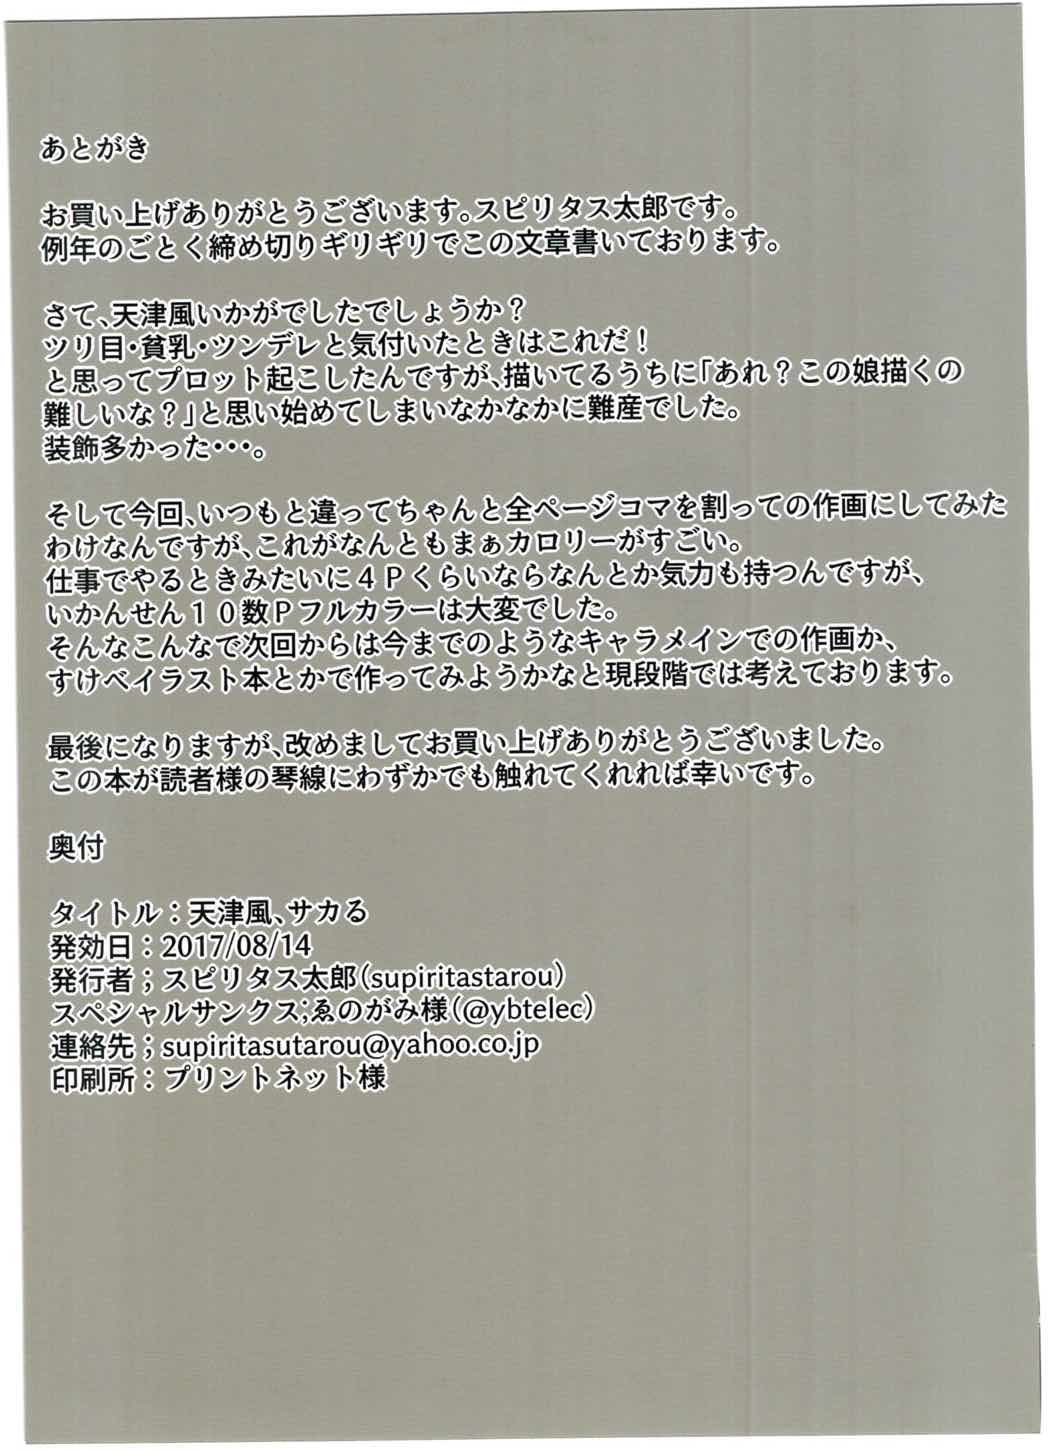 あとがき
お買い上げありがとうございます。スピリタス太郎です。
例年のごとく締め切りギリギリでこの文章書いております。
さて、天津風いかがでしたでしょうか？
ツリ目・貧乳・ツンデレと気付いたときはこれだ！
と思ってプロット起こしたんですが、描いてるうちに「あれ？この娘描くの
難しいな？」と思い始めてしまいなかなかに難産でした。
装飾多かった・・・。
そして今回、いつもと違ってちゃんと全ページコマを割っての作画にしてみた
わけなんですが、これがなんともまぁカロリーがすごい。
仕事でやるときみたいに４Ｐくらいならなんとか気力も持つんですが、
いかんせん１０数Ｐフルカラーは大変でした。
そんなこんなで次回からは今までのようなキャラメインでの作画か、
すけべイラスト本とかで作ってみようかなと現段階では考えております。
最後になりますが、改めましてお買い上げありがとうございました。
この本が読者様の琴線にわずかでも触れてくれれば幸いです。
奥付
タイトル：天津風、サカる
発効日：2017/08/14
発行者；スピリタス太郎(supiritastarou)
スペシャルサンクス;ゑのがみ様(@ybtelec)
連絡先；supiritasutarou@yahoo.co.jp
印刷所：プリントネット様